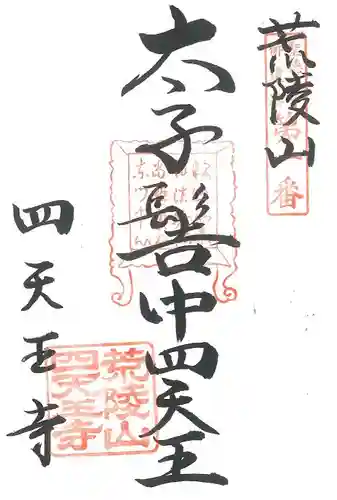 荒陵山
太子髻中四天王
四天王寺
荒陵山
四天王寺